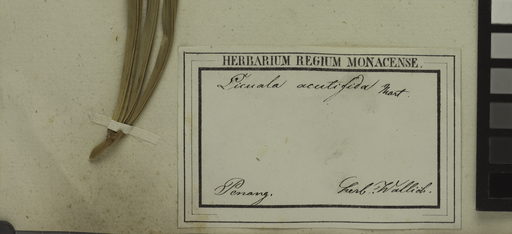 HERBARIUM REGIUM MONACENSE.
Licuala acutifida Mart.
Penang. Herb. Wallich.